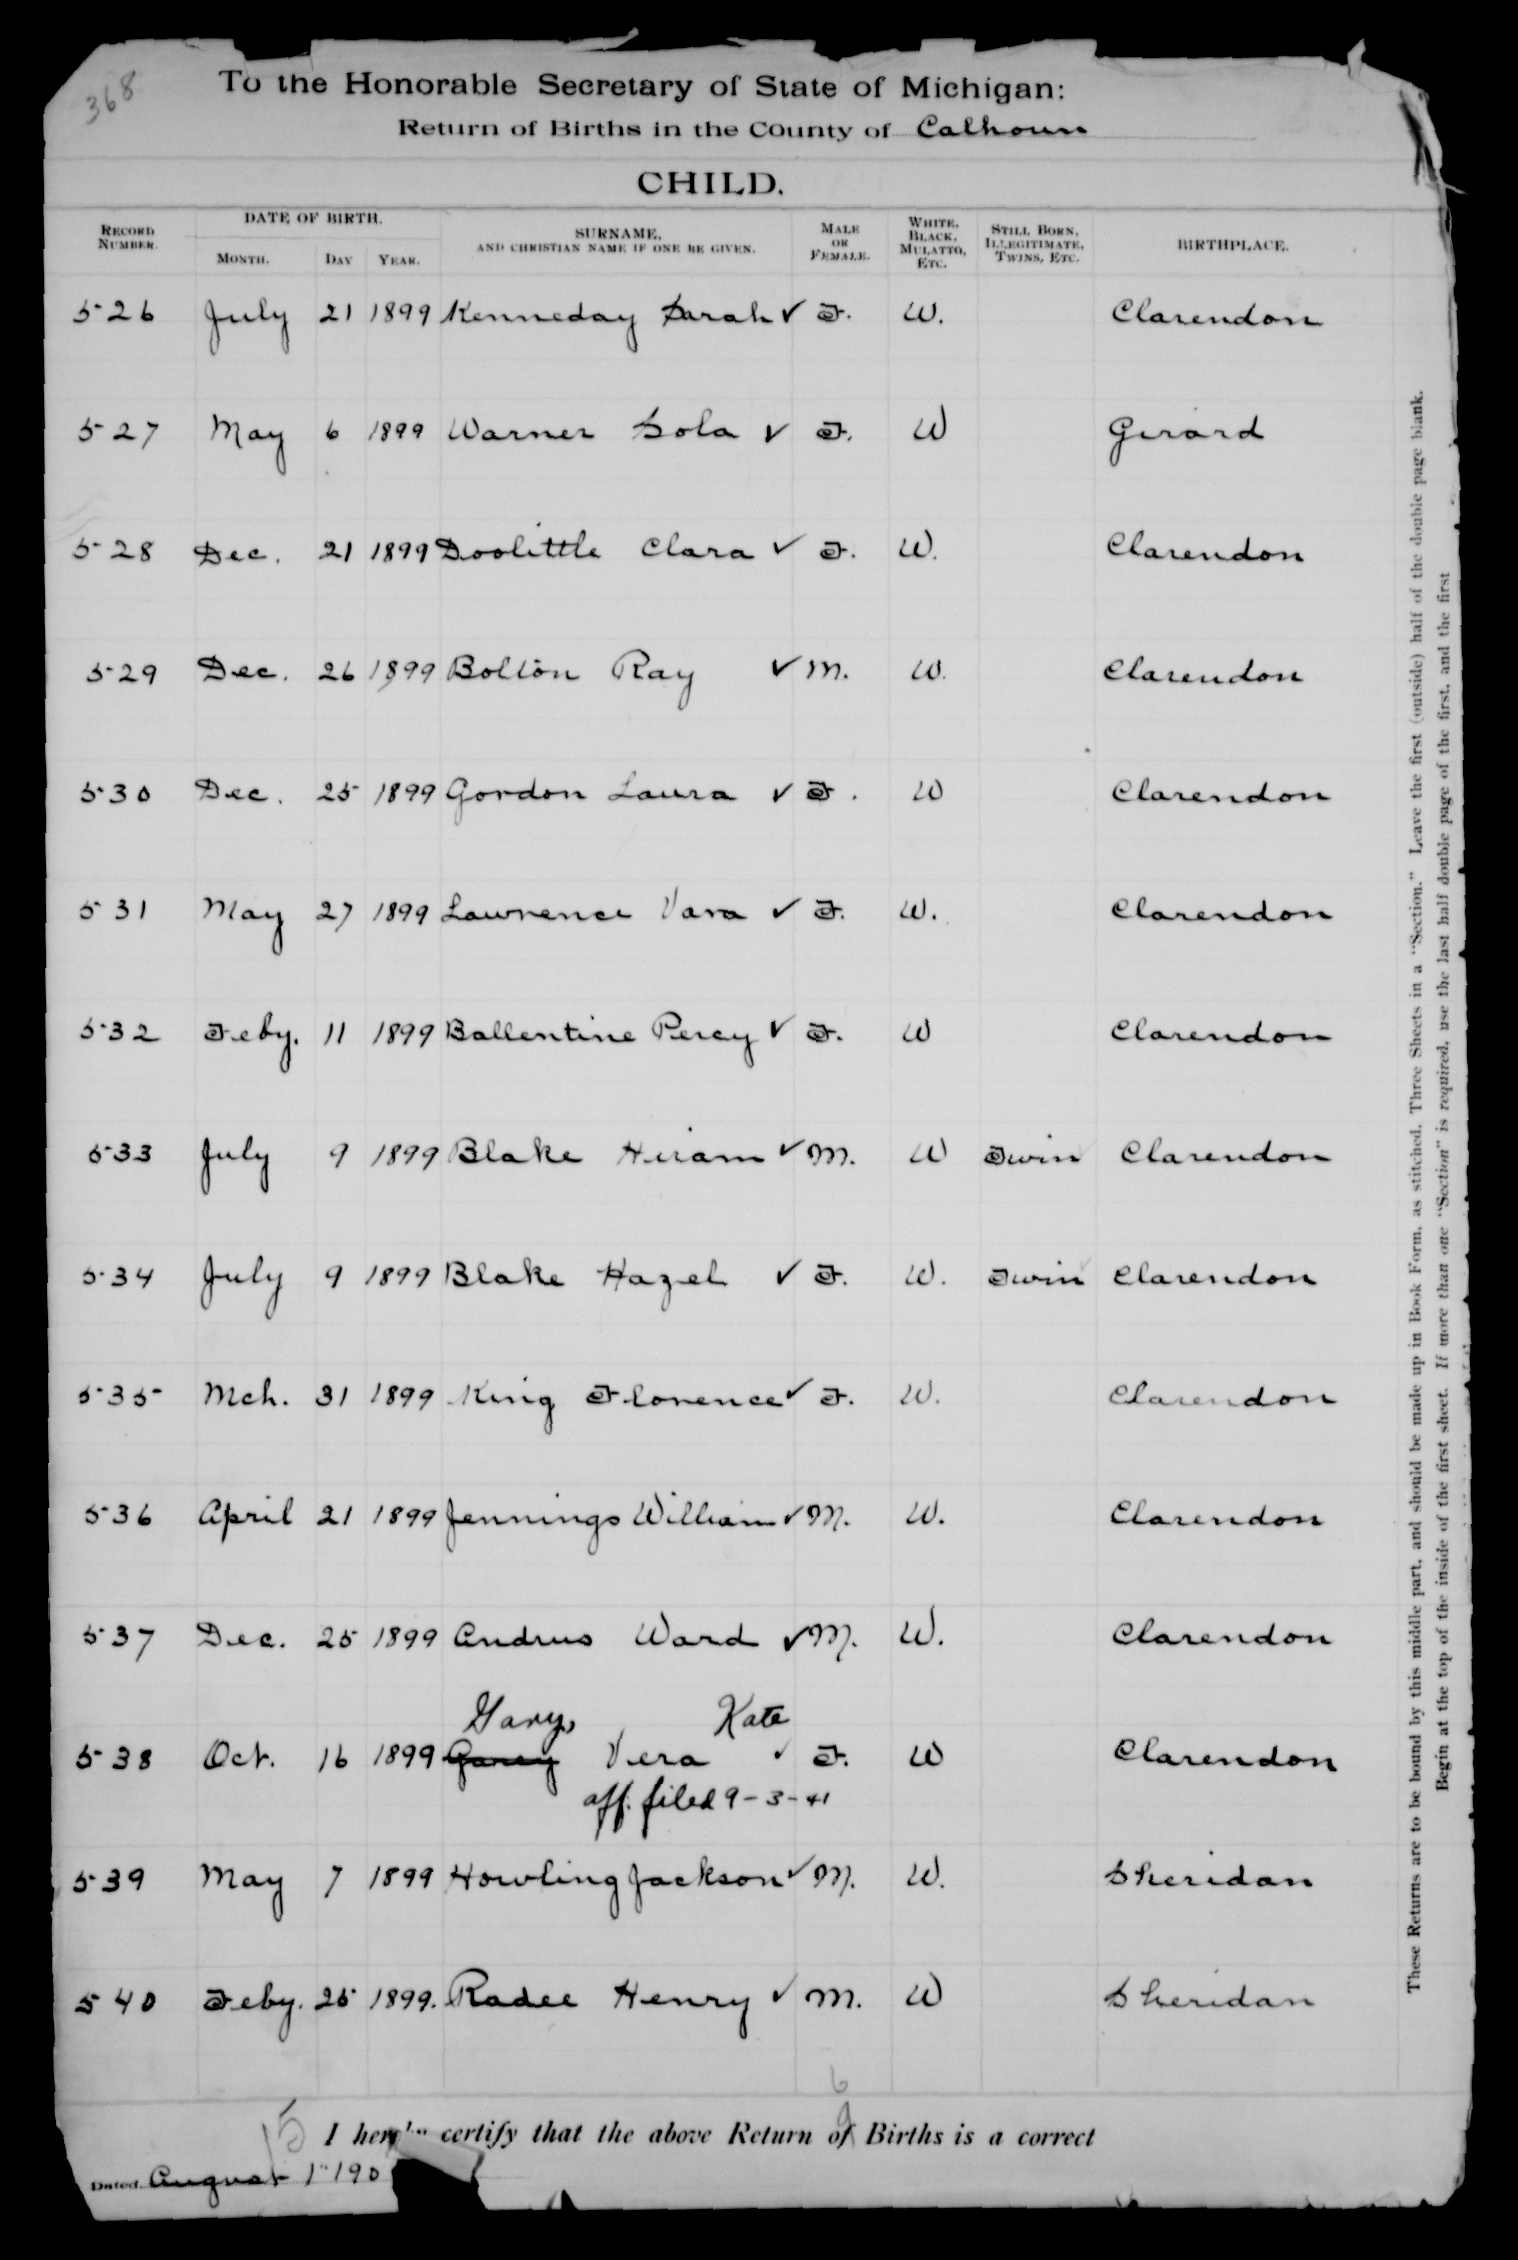 368
To the Honorable Secretary of State of Michigan:
Return of Births in the County of Calhoun
CHILD.
RECORD NUMBER. DATE OF BIRTH. MONTH. DAY YEAR. SURNAME, AND CHRISTIAN NAME IF ONE BE GIVEN. MALE OR FEMALE. WHITE, BLACK, MULATTO, ETC. STILL BORN, ILLEGITIMATE, TWINS, ETC. BIRTHPLACE.
526 July 21 1899 Kenneday Sarah ✓ F. W. Clarendon
527 May 6 1899 Warner Lola ✓ F. W Girard
528 Dec. 21 1899 Doolittle Clara ✓ F. W. Clarendon
529 Dec. 26 1899 Bolton Ray ✓ M. W. Clarendon
530 Dec. 25 1899 Gordon Laura ✓ F. W Clarendon
531 May 27 1899 Lawrence Vara ✓ F. W. Clarendon
532 Feby. 11 1899 Ballentine Percy ✓ F. W Clarendon
533 July 9 1899 Blake Hiram ✓ M. W Twin Clarendon
534 July 9 1899 Blake Hazel ✓ F. W. Twin Clarendon
535 Mch. 31 1899 King Florence ✓ F. W. Clarendon
536 April 21 1899 Jennings William ✓ M. W. Clarendon
537 Dec. 25 1899 Andrus Ward ✓ M. W. Clarendon
Gary, Kate
538 Oct. 16 1899 Garey Vera ✓ F. W Clarendon
aff. filed 9-3-41
539 May 7 1899 Howling Jackson ✓ M. W. Sheridan
540 Feby. 25 1899. Radee Henry ✓ M. W Sheridan
15
6
9
I hereby certify that the above Return of Births is a correct
Dated August 1" 190
These Returns are to be bound by this middle part, and should be made up in Book Form, as stitched. Three Sheets in a "Section." Leave the first (outside) half of the double page blank.
Begin at the top of the inside of the first sheet. If more than one "Section" is required, use the last half double page of the first, and the first